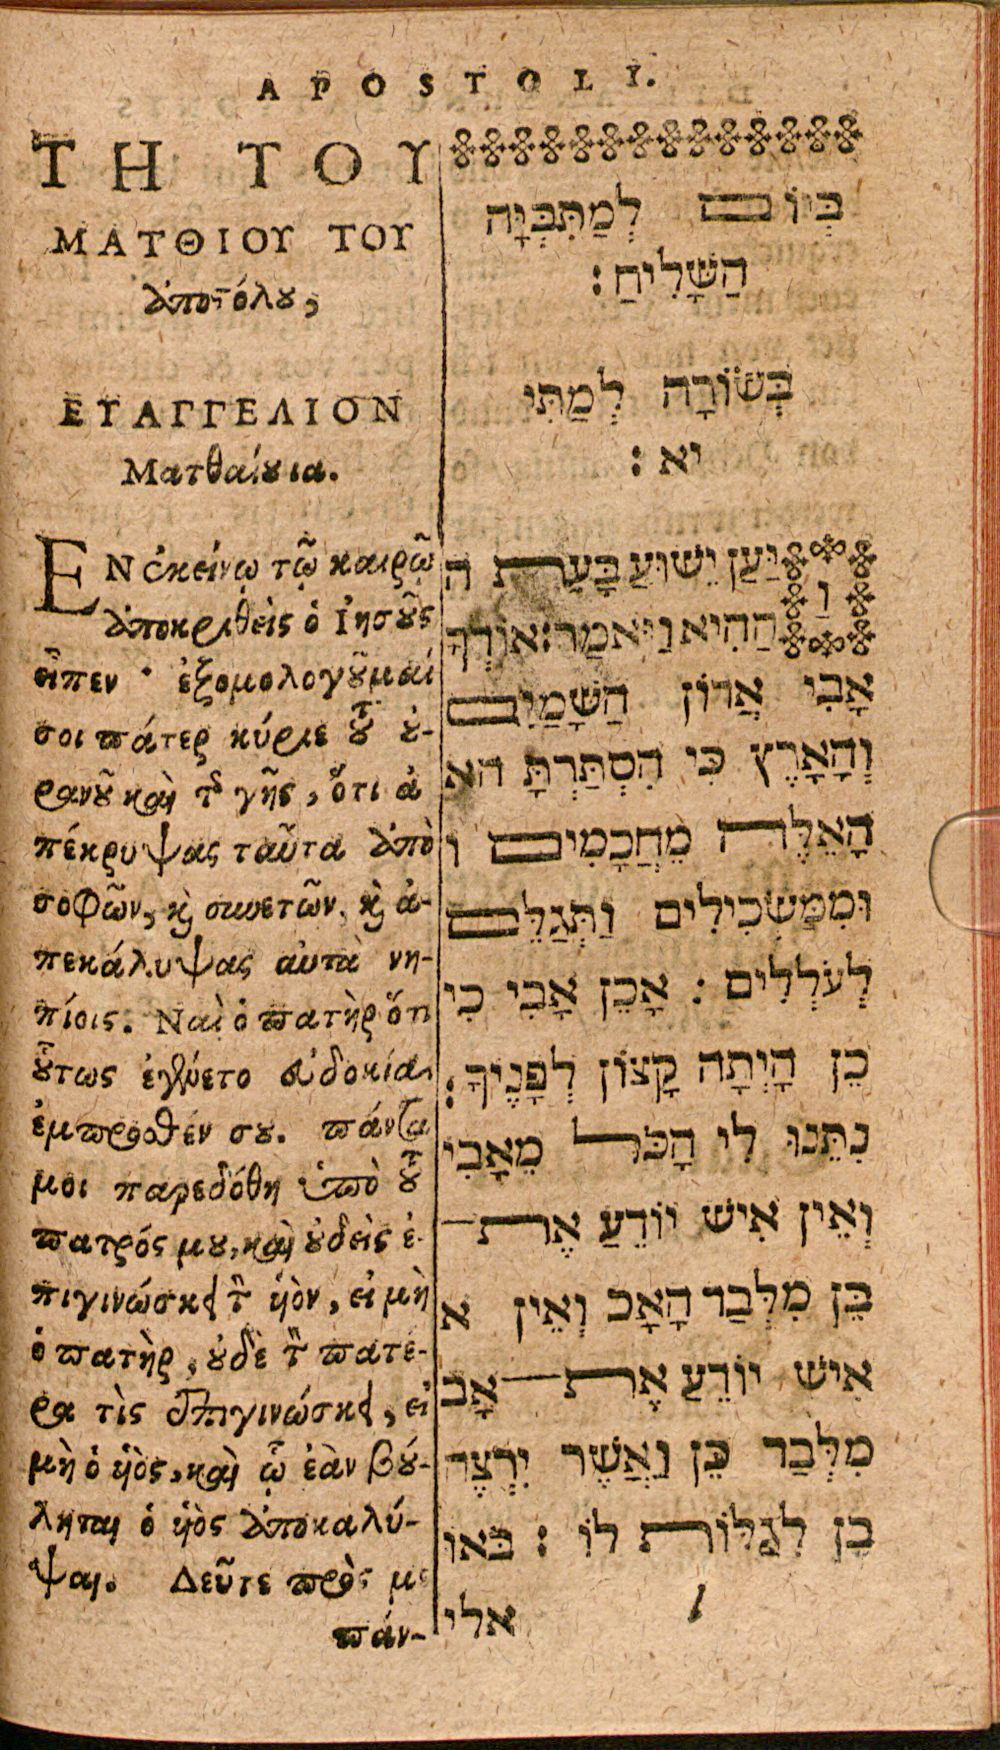 APOSTOLI.
ΤΗ ΤΟΥ
ΜΑΤΘΙΟΥ ΤΟΥ
ἀποστόλου,
ΕΥΑΓΓΕΛΙΟΝ
Ματθαίου ια.
ΕΝ ἐκείνῳ τῷ καιρῷ
ἀποκριθεὶς ὁ Ἰησοῦς
εἶπεν · ἐξομολογοῦμαί
σοι πάτερ κύριε τοῦ οὐ-
ρανοῦ καὶ τῆς γῆς, ὅτι ἀ
πέκρυψας ταῦτα ἀπὸ
σοφῶν, καὶ συνετῶν, καὶ ἀ-
πεκάλυψας αὐτὰ νη-
πίοις. Ναὶ ὁ πατὴρ ὅτι
οὕτως ἐγένετο εὐδοκία
ἔμπροσθέν σου. πάντα
μοι παρεδόθη ὑπὸ τοῦ
πατρός μου, καὶ οὐδεὶς ἐ-
πιγινώσκει τὸν υἱὸν, εἰ μὴ
ὁ πατὴρ, οὐδὲ τὸν πατέ-
ρα τὶς ἐπιγινώσκει, εἰ
μὴ ὁ υἱὸς, καὶ ᾧ ἐὰν βού-
ληται ὁ υἱὸς ἀποκαλύ-
ψαι. Δεῦτε πρὸς με
πάν-
בְּיוֹם לְמַתִּבְיָּה
הַשָּׁלִיחַ :
בְּשׂוֹרָה לְמַתִּי
יא :
וַיַּעַן יֵשׁוּעַ בָּעֵת ה
הַהִיא וַיֹּאמַר : אוֹדְךָ
אָבִי אֲדוֹן הַשָּׁמַיִם
וְהָאָרֶץ כִּי הִסְתַּרְתָּ הא
הָאֵלֶּה מֵחֲכָמִים ו
וּמִמַּשְׂכִּילִים וַתְּגַלֵּם
לְעֹלְלִים : אָכֵן אָבִי כִּי
כֵן הָיְתָה קָצוֹן לְפָנֶיךָ :
נִתְּנוּ לִי הָכֹּל מֵאָבִי
וְאֵין אִישׁ יוֹדֵעַ אֶת־
בֵּן מִלְּבַד הָאָב וְאֵין א
אִישׁ יוֹדֵעַ אֶת־אָב
מִלְּבַד בֵּן וַאֲשֶׁר יִרְצֶה
בֵן לִגְלּוֹת לוֹ : בֹּאוּ
אלי